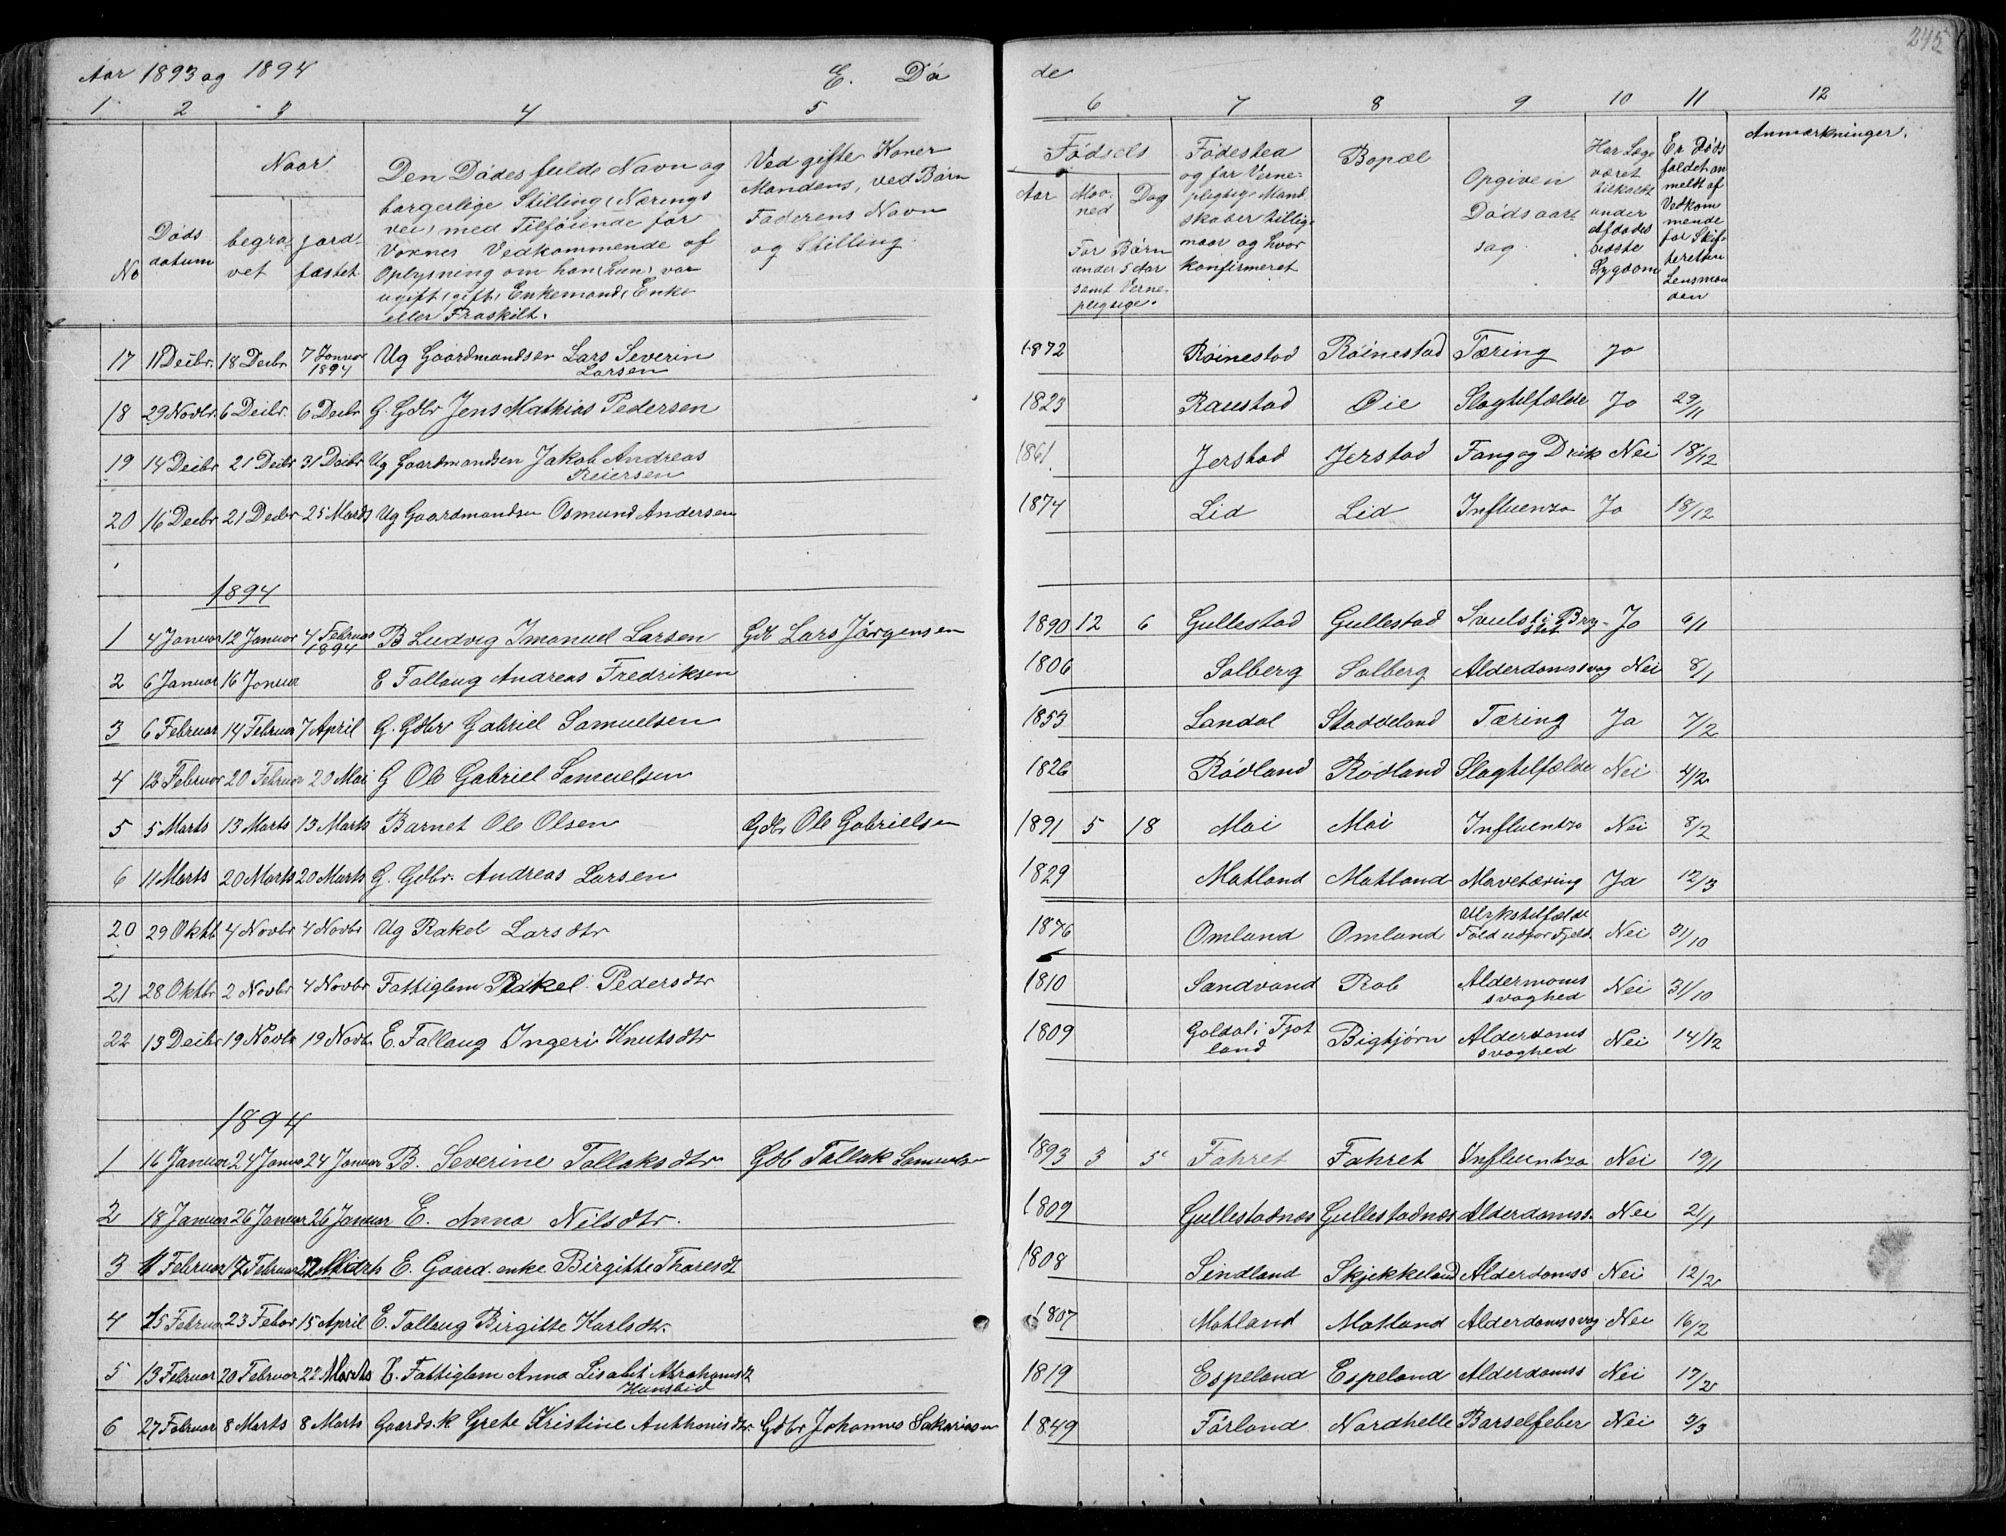 245
Aar 1893 og 1894 E. Dö de
1 2 3 4 5 6 7 8 9 10 11 12
No
Döds datum
Naar
begravet
jordfæstet
Den Dödes fulde Navn og
borgerlige Stilling (Nærings
vei) med Tilföiende for
Voxnes Vedkommende af
Oplysning om han (hun) var
ugift, gift, Enkemand, Enke
eller Fraskilt.
Ved gifte Koner
Mandens, ved Börn
Faderens Navn
og Stilling.
Födsels
Aar Maaned Dag
For Börn
under 5 Aar
samt Verne-
pligtige.
Födestea
og for Verne-
pligtige Mand
skaber tillige
naar og hvor
konfirmeret
Bopæl
Opgiven
Dödsaar
sag
Har Læge
været
tilkaldt
under
Afdödes
sidste
Sygdom
Er Döds
faldet an
meldt af
Vedkom
mende
for Skif-
teretten
Lensman
den
Anmærkninger.
17 11 Decbr. 18 Decbr 7 Januar 1894 Ug Gaardmandsön Lars Severin Larsen 1872 Röinestad Röinestad Tæring Ja
18 29 Novbr 6 Decbr. 6 Decbr G. Gdbr Jens Mathias Pedersen 1823 Raustad Öie Slagtilfælde Ja 29/11
19 14 Decbr 21 Decbr 31 Decbr Ug Gaardmandsen Jakob Andreas Reiersen 1861 Jerstad Jerstad Fang og Drik Nei 18/12
20 16 Decbr 21 Decbr 25 Marts Ug Gaardmandsn Osmund Andersen 1874 Lid Lid Influenza Ja 18/12
1894
1 4 Januar 12 Januar 4 Februar 1894 B Ludvig Imanuel Larsen Gdb Lars Jörgensen 1890 12 6 Gullestad Gullestad Svulst i Bry- stet Ja 6/1
2 6 Januar 16 Januar E Follaug Andreas Fredriksen 1806 Solberg Solberg Alderdomssvag Nei 8/1
3 6 Februar 14 Februar 7 April G. Gdbr Gabriel Samuelsen 1853 Landal Staddeland Tæring Ja 7/2
4 13 Februar 20 Februar 20 Mai G Ole Gabriel Samuelsen 1826 Rödland Rödland Slagtilfælde Nei 4/2
5 5 Marts 13 Marts 13 Marts Barnet Ole Olsen Gdbr Ole Gabrielsen 1891 5 18 Moi Moi Influentza Nei 8/2
6 11 Marts 20 Marts 20 Marts G. Gdbr. Andreas Larsen 1829 Matland Matland Mavetæring Ja 12/3
20 29 Oktb 4 Novbr 4 Novbr Ug Rakel Larsdtr 1876 Omland Omland Ulykstilfælde Fald udfor Fjeld. Nei 31/10
21 28 Oktbr 2 Novbr 4 Novbr Fattiglem Rakel Pedersdtr 1810 Sandvand Rob Aldermoms svaghed Nei 31/10
22 13 Decbr 19 Novbr 19 Novbr E. Follaug Ingeri Knutsdtr 1809 Goldal i Fjotland Bigbjörn Alderdoms svaghed Nei 14/12
1894
1 16 Januar 24 Janua 24 Januar B. Severine Tollaksdtr Gdb Tollak Samuels 1893 3 5 Fahret Fahret Influentza Nei 19/1
2 18 Januar 26 Januar 26 Januar E. Anna Nilsdtr. 1809 Gullestadnæs Gullestadnæs Alderdomss. Nei 21/1
3 Februar 17 Februar Marts E. Gaard. enke Birgitte Tharesdt 1808 Sindland Skjekkeland Alderdomss Nei 12/2
4 15 Februar 23 Febar 15 April E. Follaug Birgitte Karlsdtr. 1807 Matland Matland Alderdomssvag Nei 16/2
5 13 Februar 20 Februar 22 Marts E. Fattiglem Anna Lisabet Abrahamsdt Hunsbid 1819 Espeland Espeland Alderdomss Nei 17/2
6 27 Februar 8 Marts 8 Marts Gaards.k Grete Kristine Anthonisdtr Gdbr Johannes Sakariasen 1849 Förland Nordhelle Barselfeber Nei 3/3